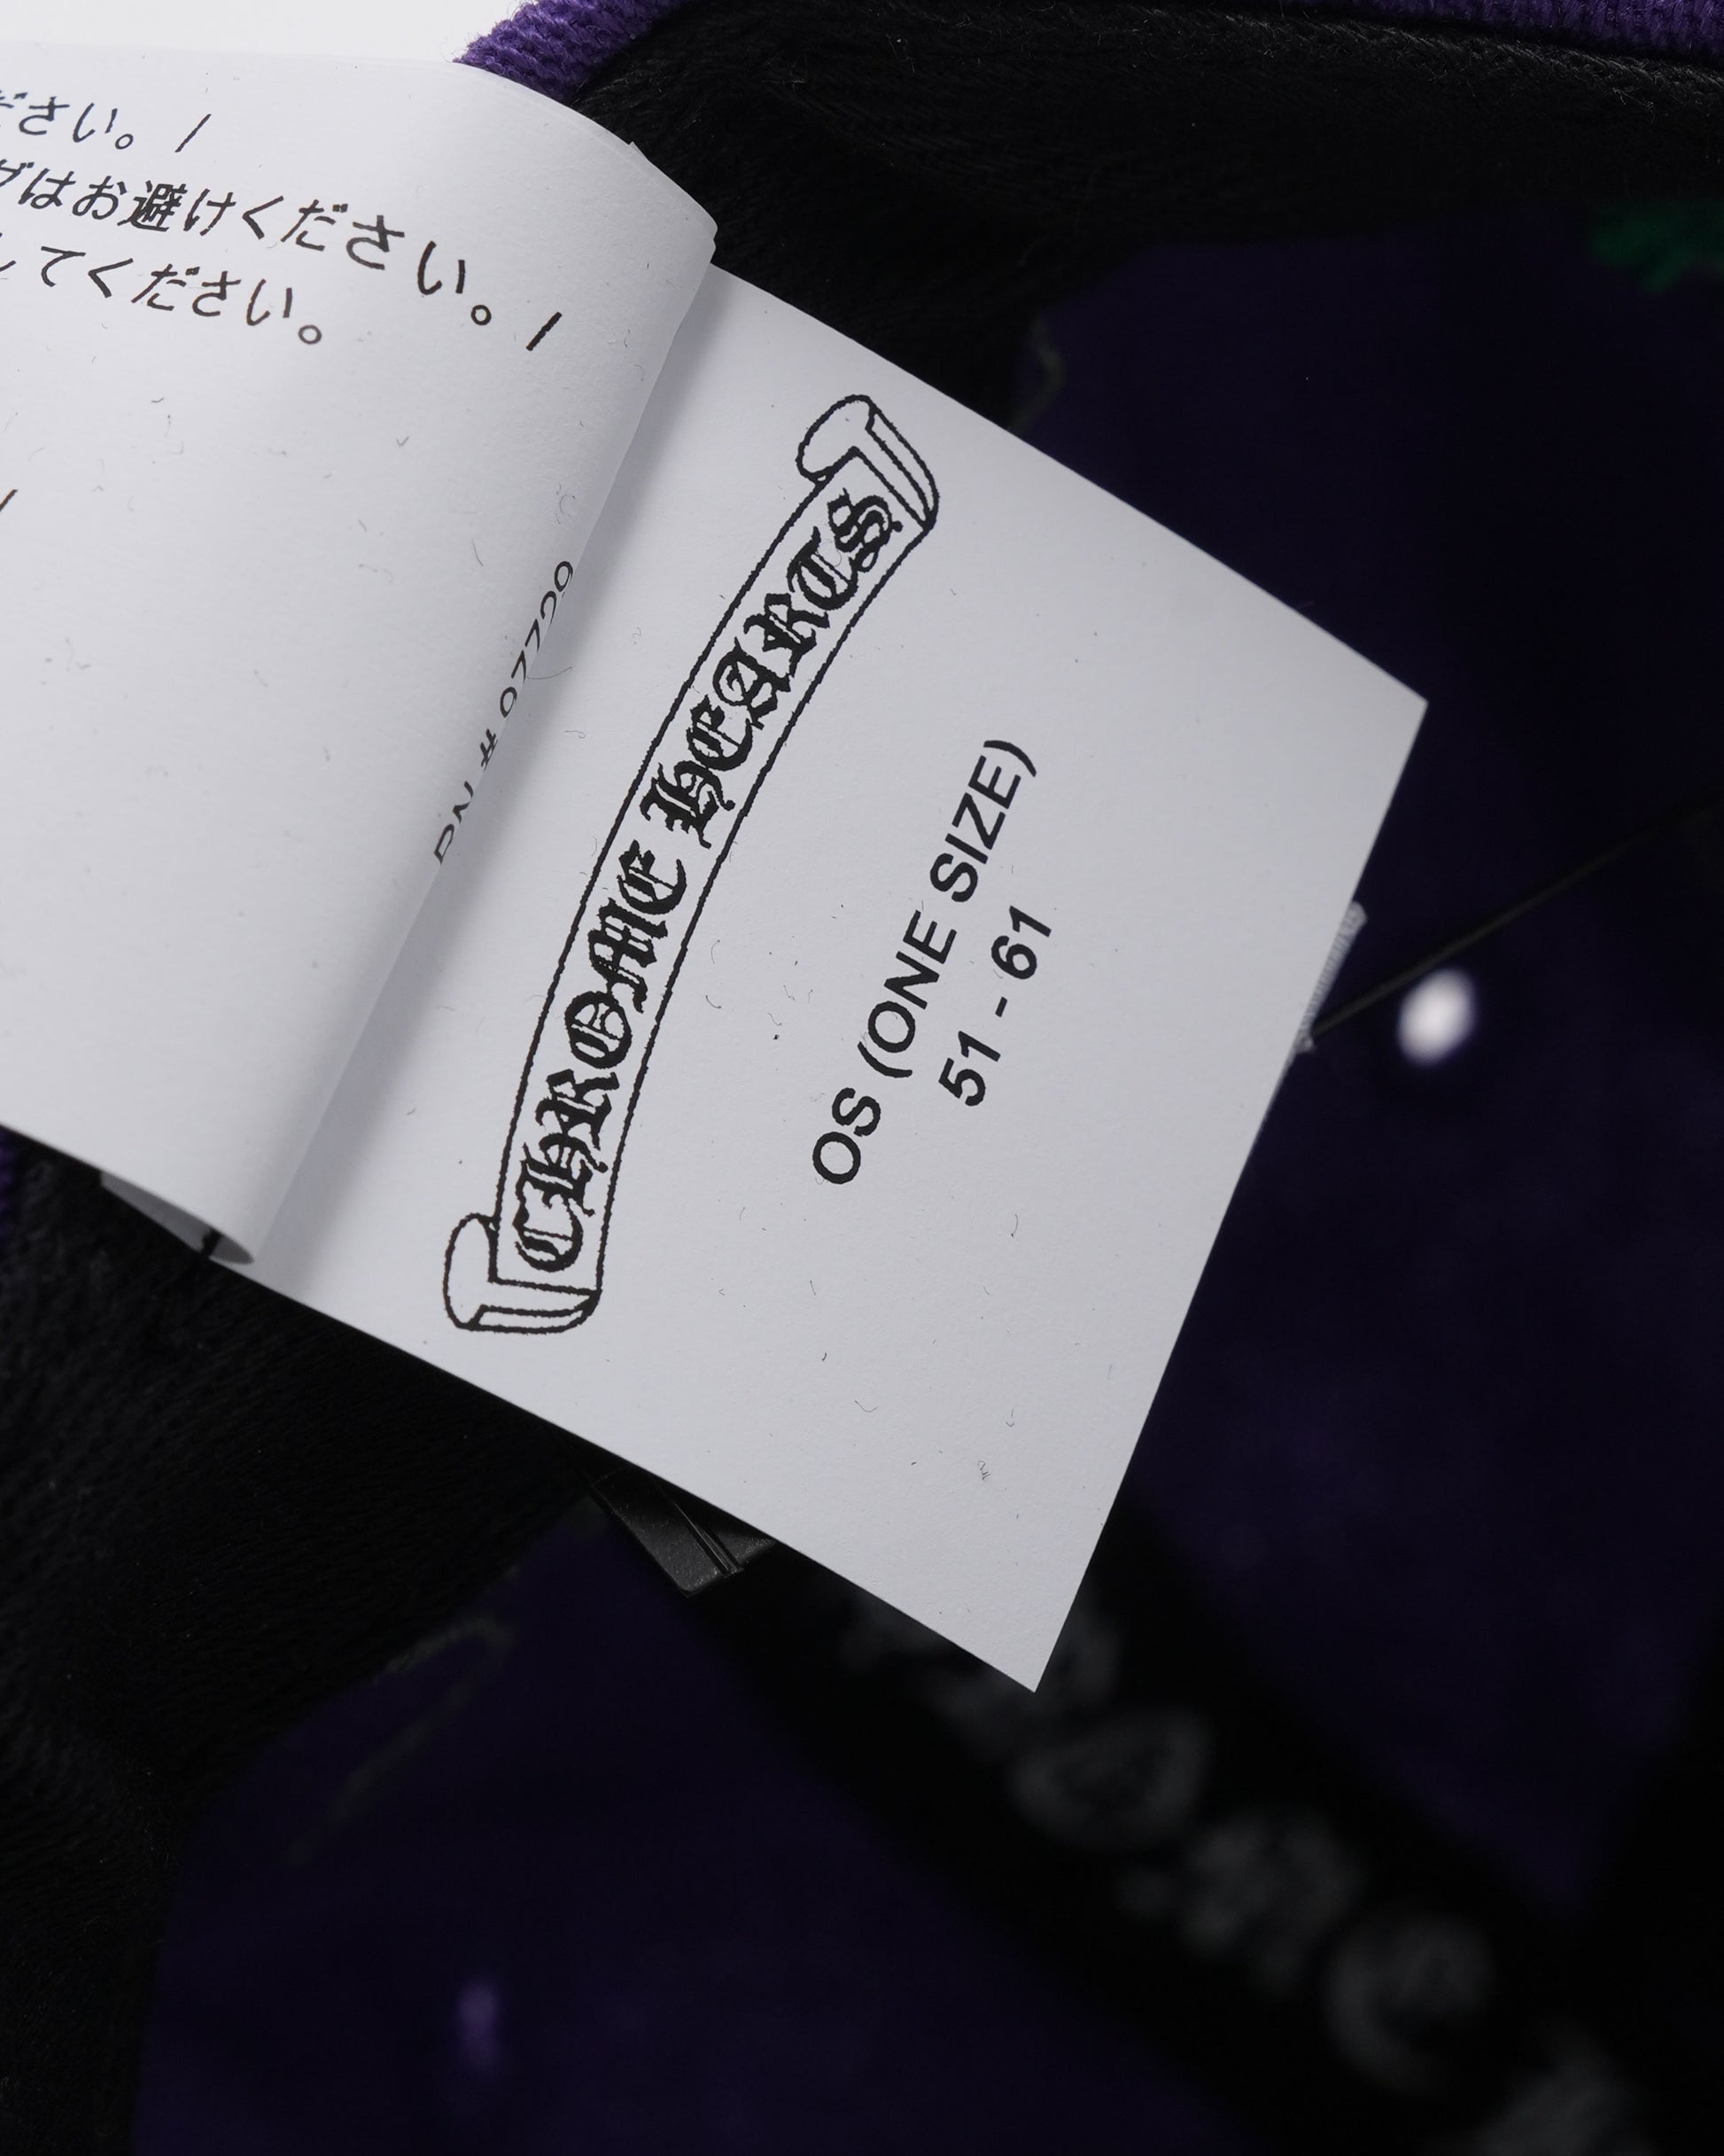 ださい。/
グはお避けください。/
してください。
/
RN # 07729
CHROME HEARTS
OS (ONE SIZE)
51 - 61